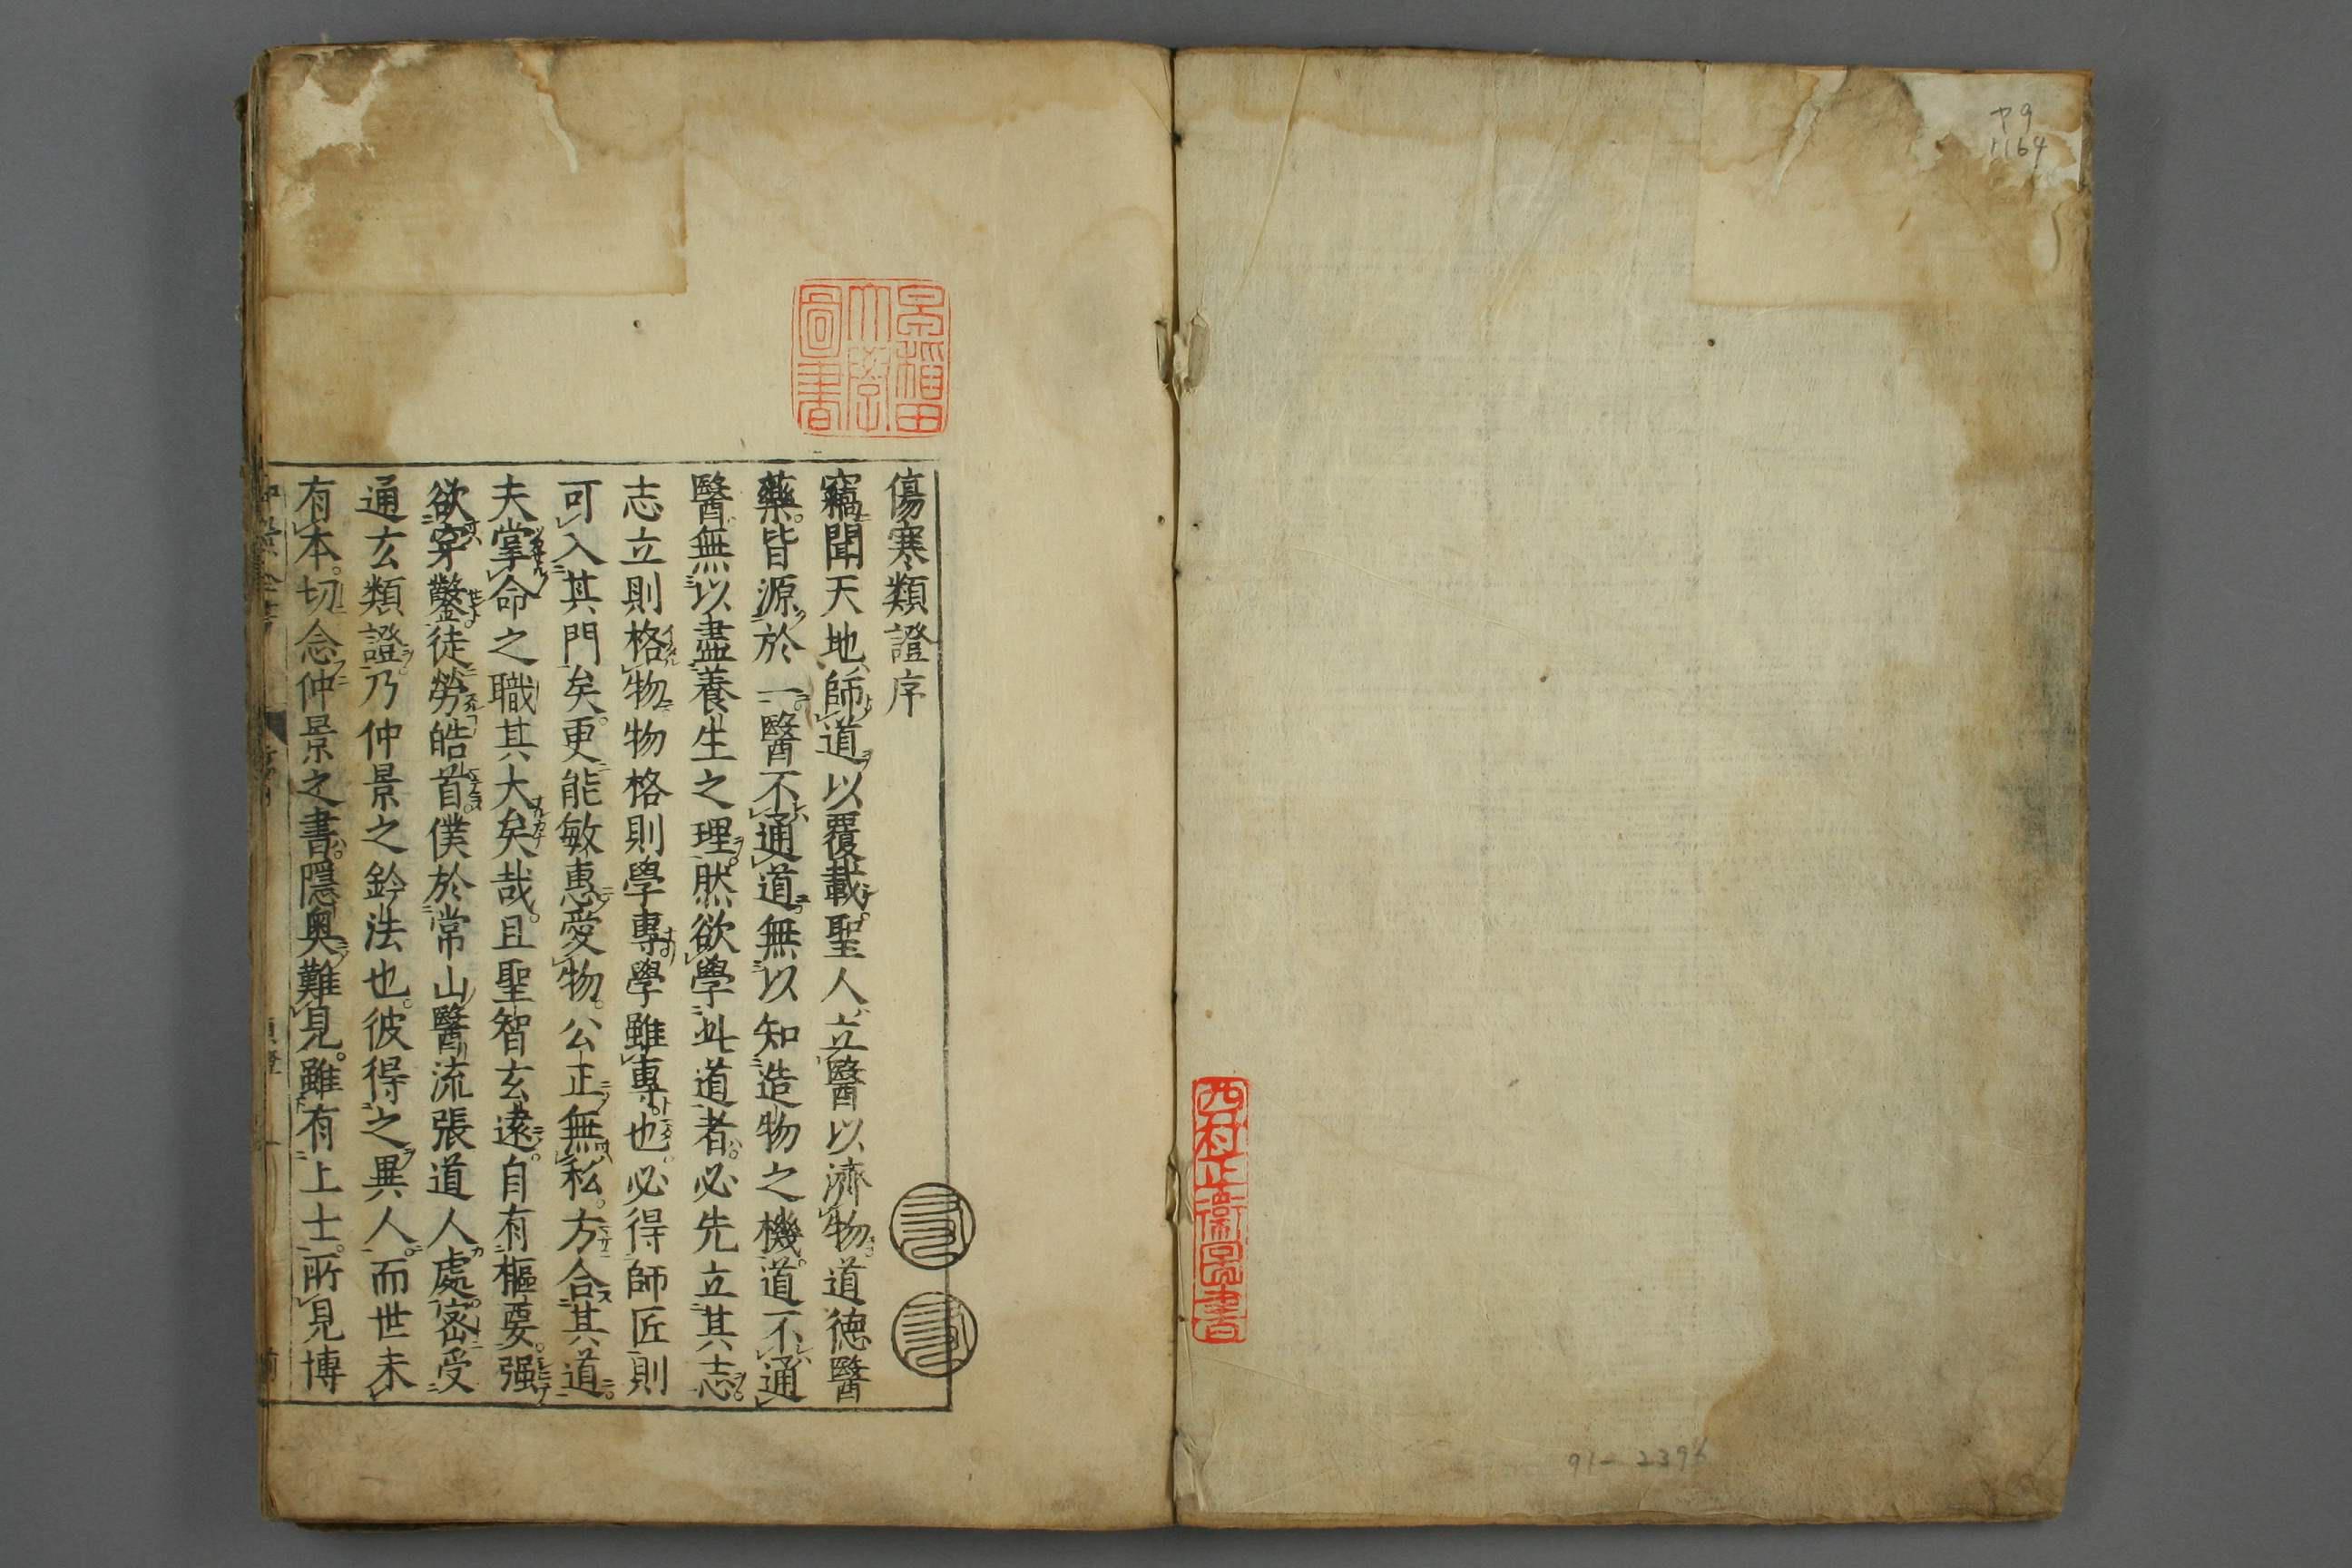 ヤ9
1164
西村正衛図書
91-2396
早稲田
大學
圖書
傷寒類證序
竊聞天地師道以覆載聖人立醫以濟物道德醫
藥皆源於一醫不通道無以知造物之機道不通
醫無以盡養生之理然欲學此道者必先立其志
志立則格物物格則學專學雖專也必得師匠則
可入其門矣更能敏惠愛物公正無私方合其道
夫掌命之職其大矣哉且聖智玄遠自有樞要强
欲穿鑿徒勞皓首僕於常山醫流張道人處密受
通玄類證乃仲景之鈐法也彼得之異人而世未
有本切念仲景之書隱奧難見雖有上士所見博